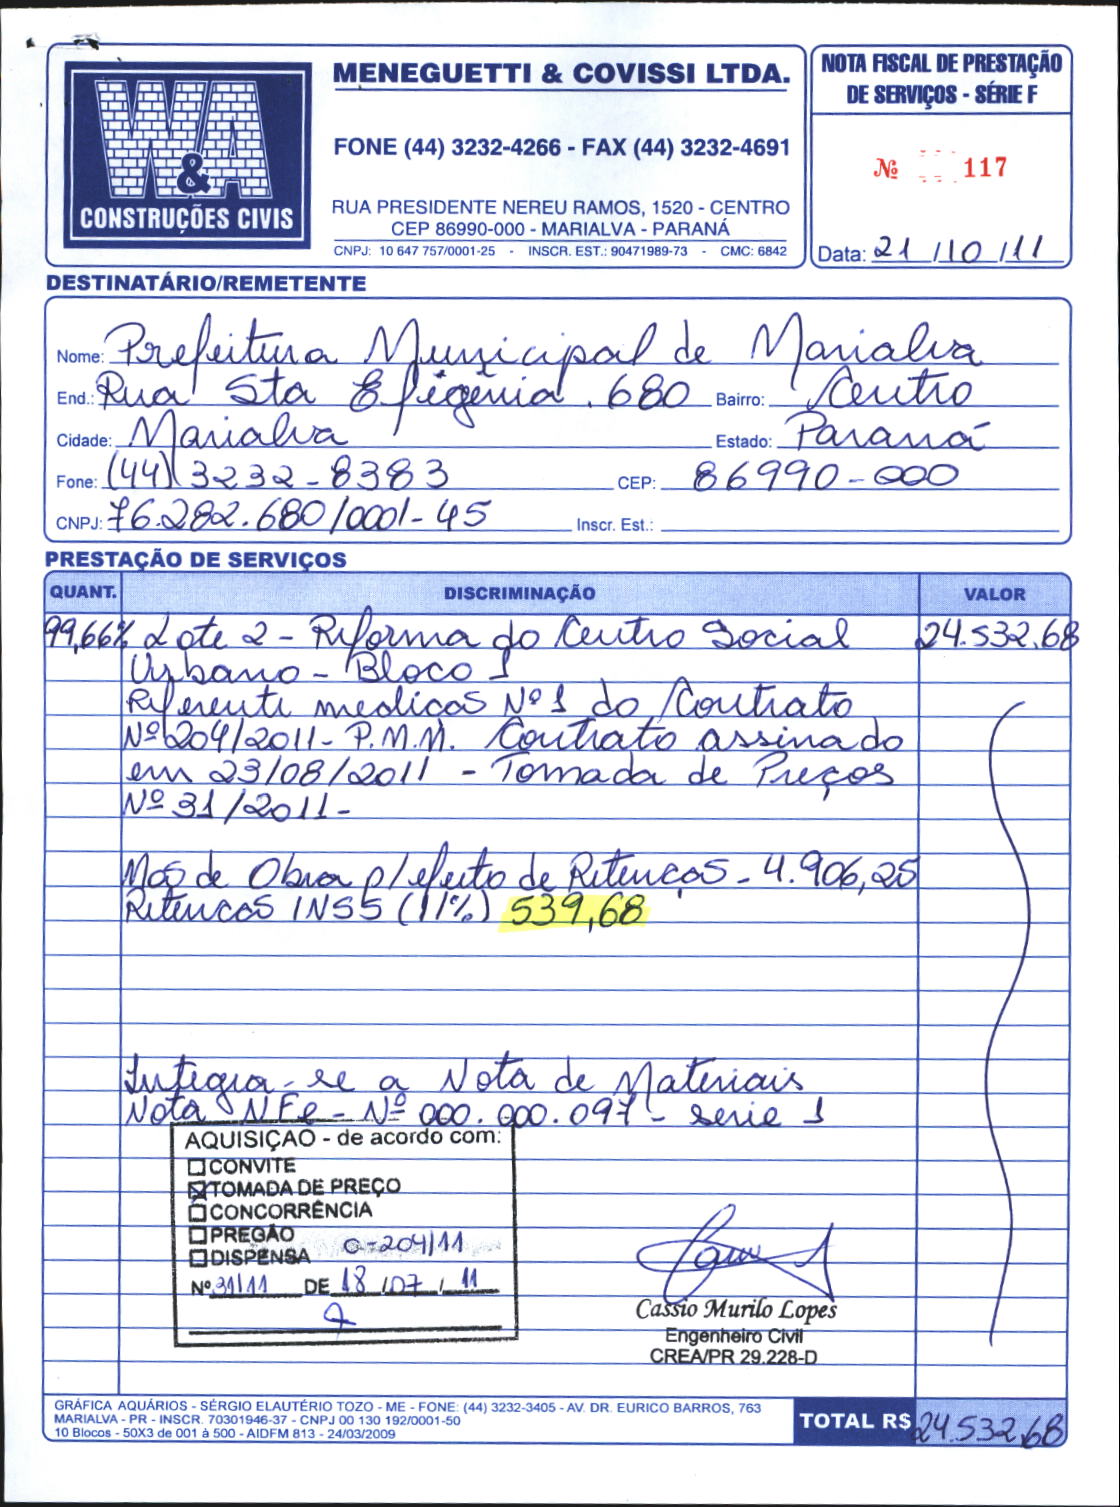 W&A
CONSTRUÇÕES CIVIS
MENEGUETTI & COVISSI LTDA.
FONE (44) 3232-4266 - FAX (44) 3232-4691
RUA PRESIDENTE NEREU RAMOS, 1520 - CENTRO
CEP 86990-000 - MARIALVA - PARANÁ
CNPJ: 10 647 757/0001-25 - INSCR. EST.: 90471989-73 - CMC: 6842
NOTA FISCAL DE PRESTAÇÃO
DE SERVIÇOS - SÉRIE F
Nº 117
Data: 21/10/11
DESTINATÁRIO/REMETENTE
Nome: Prefeitura Municipal de Marialva
End.: Rua Sta Efigênia, 680 Bairro: Centro
Cidade: Marialva Estado: Paraná
Fone: (44) 3232-8383 CEP: 86990-000
CNPJ: 76.282.680/0001-45 Inscr. Est.:
PRESTAÇÃO DE SERVIÇOS
QUANT. DISCRIMINAÇÃO VALOR
99,66% Lote 2 - Reforma do Centro Social 24.532,68
Urbano - Bloco 1
Referente medicas Nº 1 do Contrato
Nº 204/2011 - P.M.M. Contrato assinado
em 23/08/2011 - Tomada de Preços
Nº 31/2011 -
Mão de Obra p/ efeito de Retenção - 4.906,25
Retenção INSS (11%) 539,68
Integra-se a Nota de Materiais
Nota NFe - Nº 000.000.097 - serie 1
AQUISIÇÃO - de acordo com:
CONVITE
TOMADA DE PREÇO
CONCORRÊNCIA
PREGÃO
DISPENSA C-204/11
Nº 31/11 DE 18/07/11
Cassio Murilo Lopes
Engenheiro Civil
CREA/PR 29.228-D
GRÁFICA AQUÁRIOS - SÉRGIO ELAUTÉRIO TOZO - ME - FONE: (44) 3232-3405 - AV. DR. EURICO BARROS, 763
MARIALVA - PR - INSCR. 70301946-37 - CNPJ 00 130 192/0001-50
10 Blocos - 50X3 de 001 à 500 - AIDFM 813 - 24/03/2009
TOTAL R$ 24.532,68